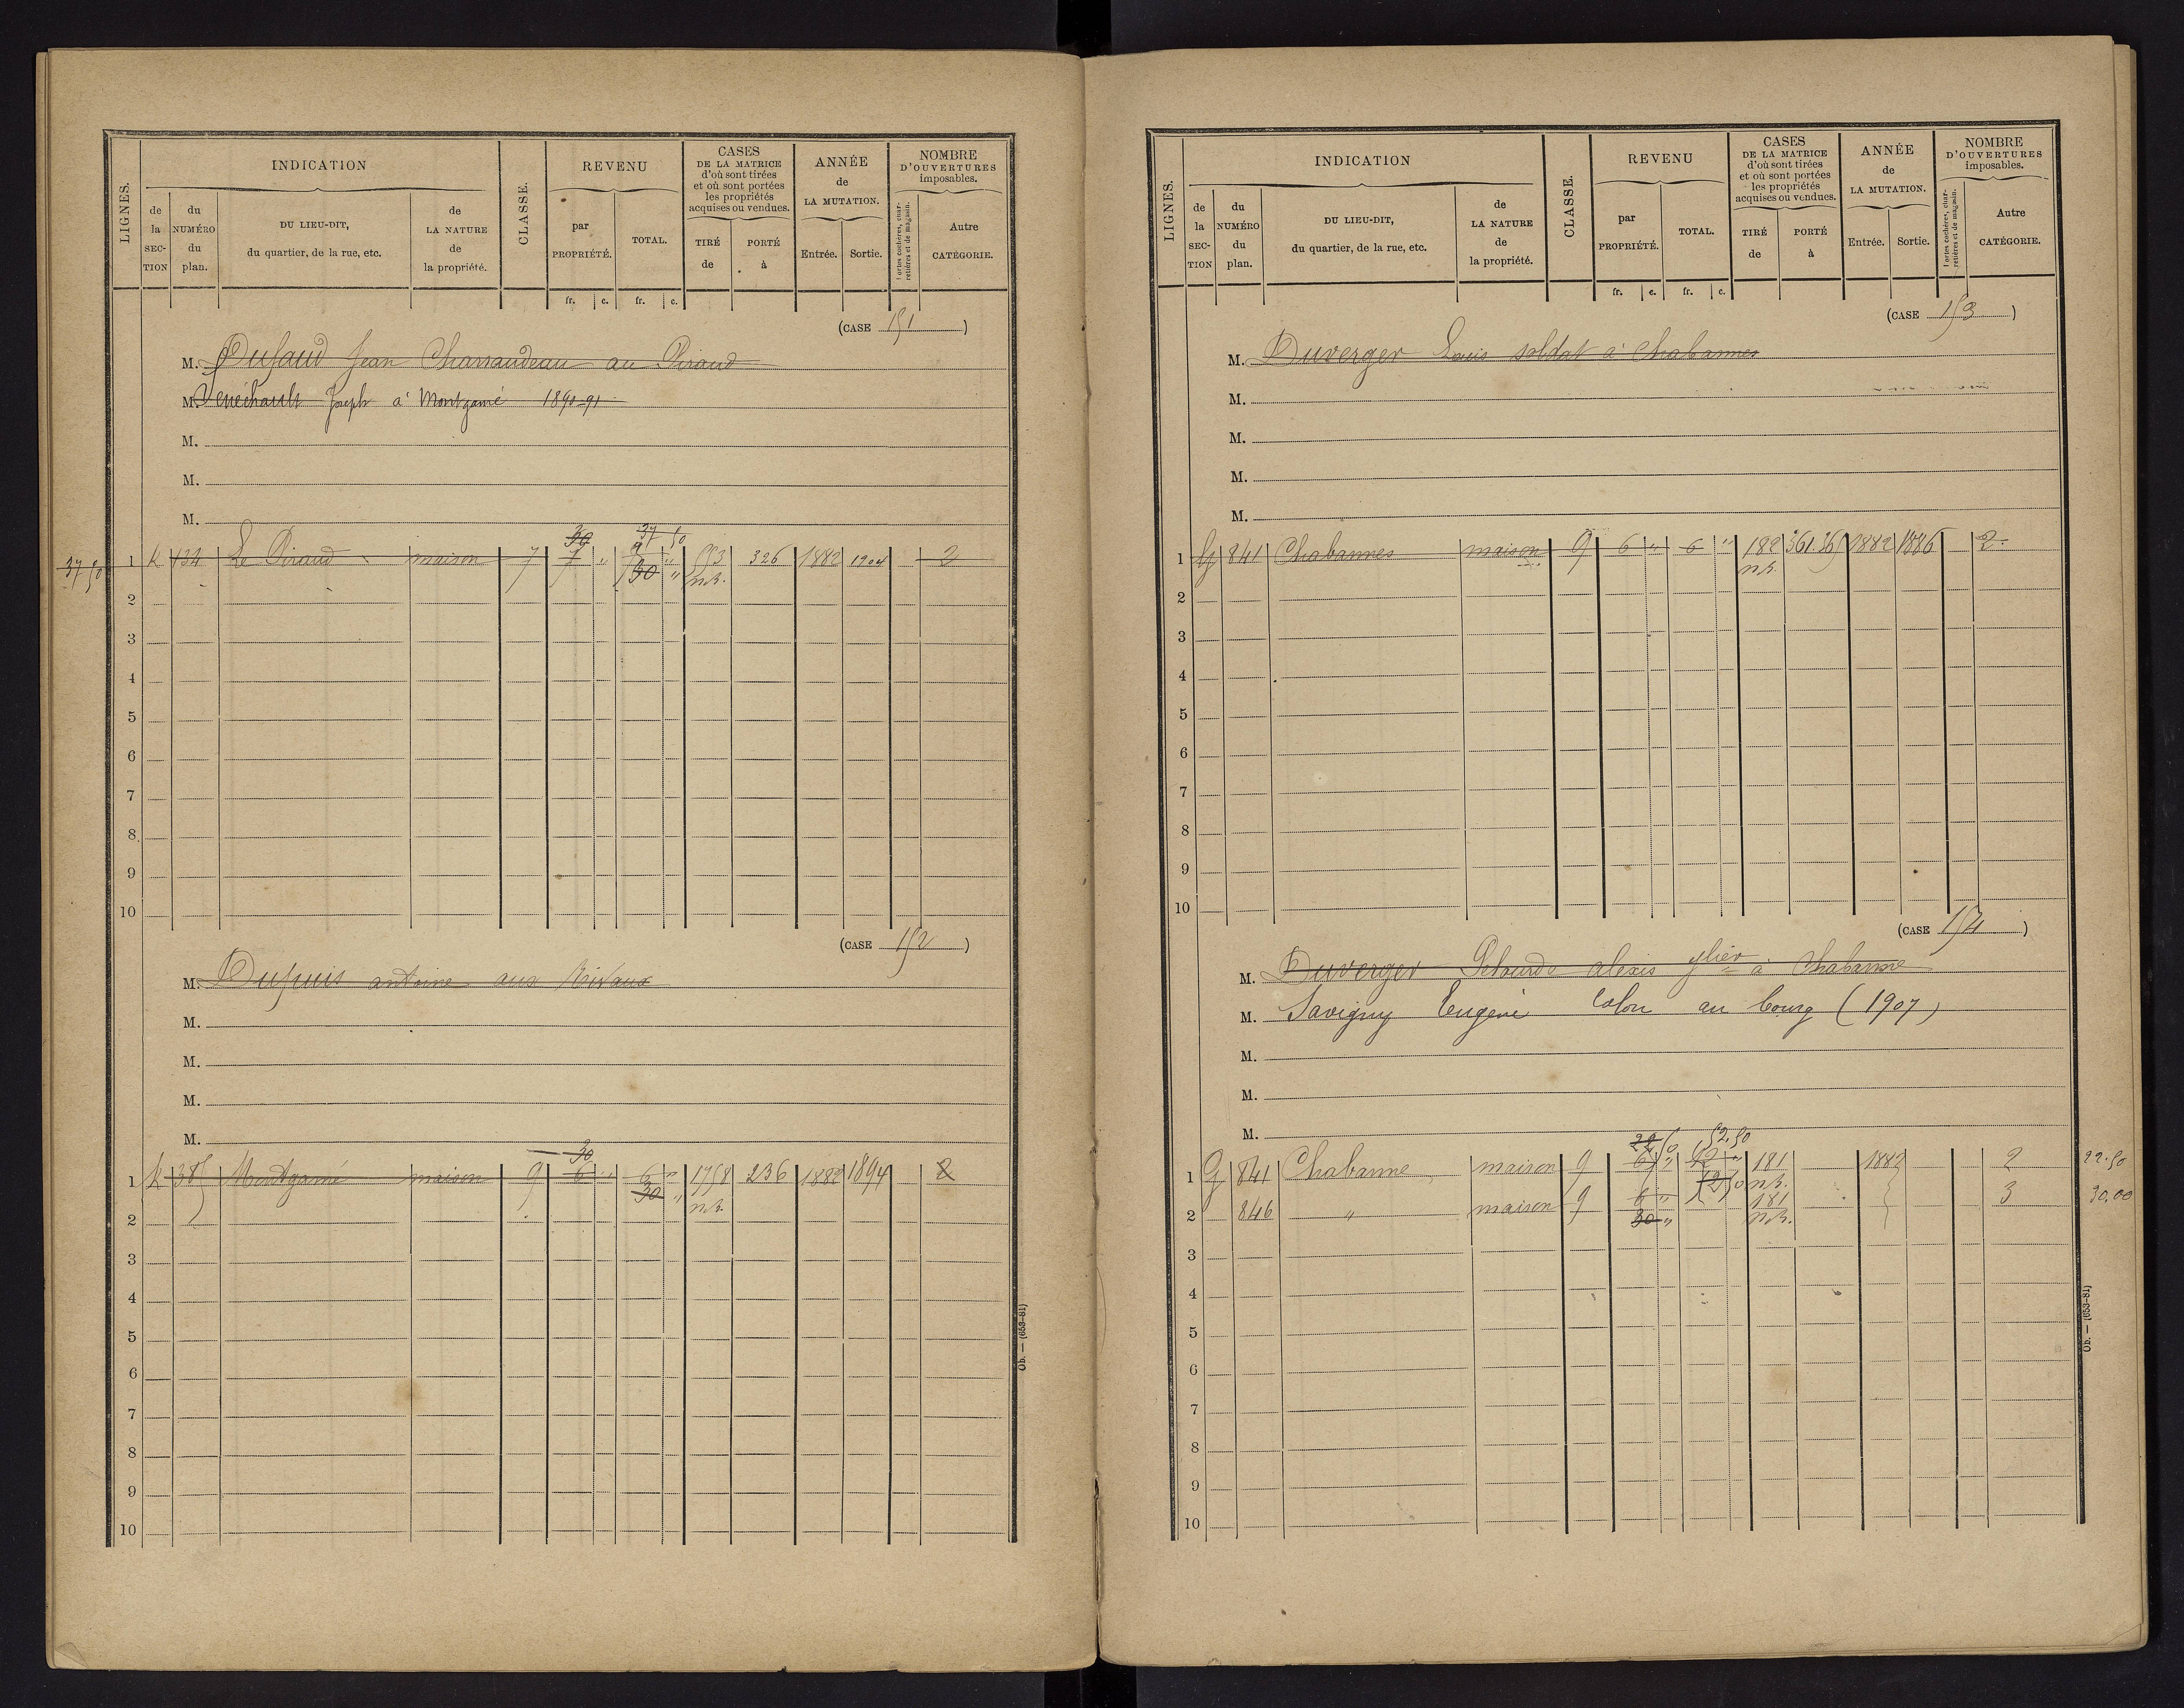 LIGNES.
INDICATION
de la SECTION
du NUMÉRO du plan.
DU LIEU-DIT, du quartier, de la rue, etc.
de LA NATURE de la propriété.
CLASSE.
REVENU
par PROPRIÉTÉ.
TOTAL.
fr. c. fr. c.
CASES DE LA MATRICE d'où sont tirées et où sont portées les propriétés acquises ou vendues.
TIRÉ de
PORTÉ à
ANNÉE de LA MUTATION.
Entrée. Sortie.
NOMBRE D'OUVERTURES imposables.
Portes cochères, charretières et de magasin.
Autre CATÉGORIE.
(CASE 151)
M. Dufaud Jean Chassaudeau au Piraud
M. Senéchault Joseph à Montgamé 1890-91
M.
M.
M.
30 37 50
37 50 1 K 434 Le Piraud maison 7 7 " 7 " 553 326 1882 1904 2
30 " n.b.
2
3
4
5
6
7
8
9
10
(CASE 152)
M. Dupuis antoine aux Rivaux
M.
M.
M.
M.
30
1 K 385 Montgamé maison 9 6 " 6 " 1758 236 1882 1894 2
30 " n.b.
2
3
4
5
6
7
8
9
10
Ob. — (653-81)
LIGNES.
INDICATION
de la SECTION
du NUMÉRO du plan.
DU LIEU-DIT, du quartier, de la rue, etc.
de LA NATURE de la propriété.
CLASSE.
REVENU
par PROPRIÉTÉ.
TOTAL.
fr. c. fr. c.
CASES DE LA MATRICE d'où sont tirées et où sont portées les propriétés acquises ou vendues.
TIRÉ de
PORTÉ à
ANNÉE de LA MUTATION.
Entrée. Sortie.
NOMBRE D'OUVERTURES imposables.
Portes cochères, charretières et de magasin.
Autre CATÉGORIE.
(CASE 153)
M. Duverger Louis soldat à Chabannes
M.
M.
M.
M.
1 G 841 Chabannes maison 9 6 " 6 " 182 361. 1882 1886 2
n.b.
2
3
4
5
6
7
8
9
10
(CASE 154)
M. Duverger alexis à Chabanne
M. Savigny Eugène Colon au bourg (1907)
M.
M.
M.
22 50 52.50
1 G 841 Chabanne maison 9 6 " 12 " 181 1882 2 22.50
52 50 n.b.
2 846 " maison 9 6 " 181 3 30,00
30 " n.b.
3
4
5
6
7
8
9
10
Ob. — (653-81)